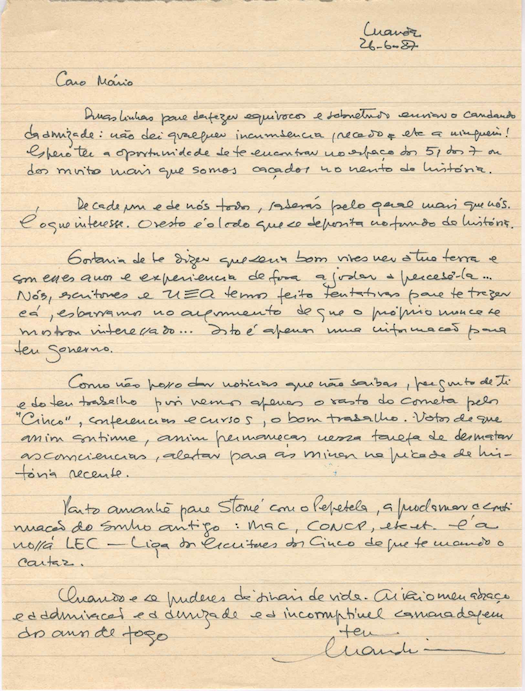 Luanda
26-6-87
Caro Mário
Duas linhas para desfazer equívocos e sobretudo enviar o candando
da amizade: não dei qualquer incumbência, recado, etc a ninguém!
Espero ter a oportunidade de te encontrar no espaço dos 5, dos 7 ou
dos muito mais que somos caçados no vento da história.
De cada um e de nós todos, saberás pelo geral mais que nós.
É o que interessa. O resto é o lodo que se deposita no fundo da história.
Gostaria de te dizer que seria bom vires ver a tua terra e
com esses anos e experiência de fora ajudar a percebê-la...
Nós, escritores e UEA temos feito tentativas para te trazer
cá, esbarramos no argumento de que o próprio nunca se
mostrou interessado... Isto é apenas uma informação para
teu governo.
Como não posso dar notícias que não saibas, pergunto de ti
e do teu trabalho pois vemos apenas o rasto do cometa pelos
"Cinco", conferências e cursos, o bom trabalho. Votos de que
assim continue, assim permaneças nessa tarefa de desmatar
as consciências, alertar para as minas na picada da his-
tória recente.
Parto amanhã para S. Tomé com o Pepetela, a proclamar a conti-
nuação do sonho antigo: MAC, CONCP, etc etc. É a
nossa LEC — Liga dos Escritores dos Cinco de que te mando o
cartaz.
Quando e se puderes dá sinais de vida. Aí vai o meu abraço
e a admiração e a amizade e a incorruptível camaradagem
dos anos de fogo
teu